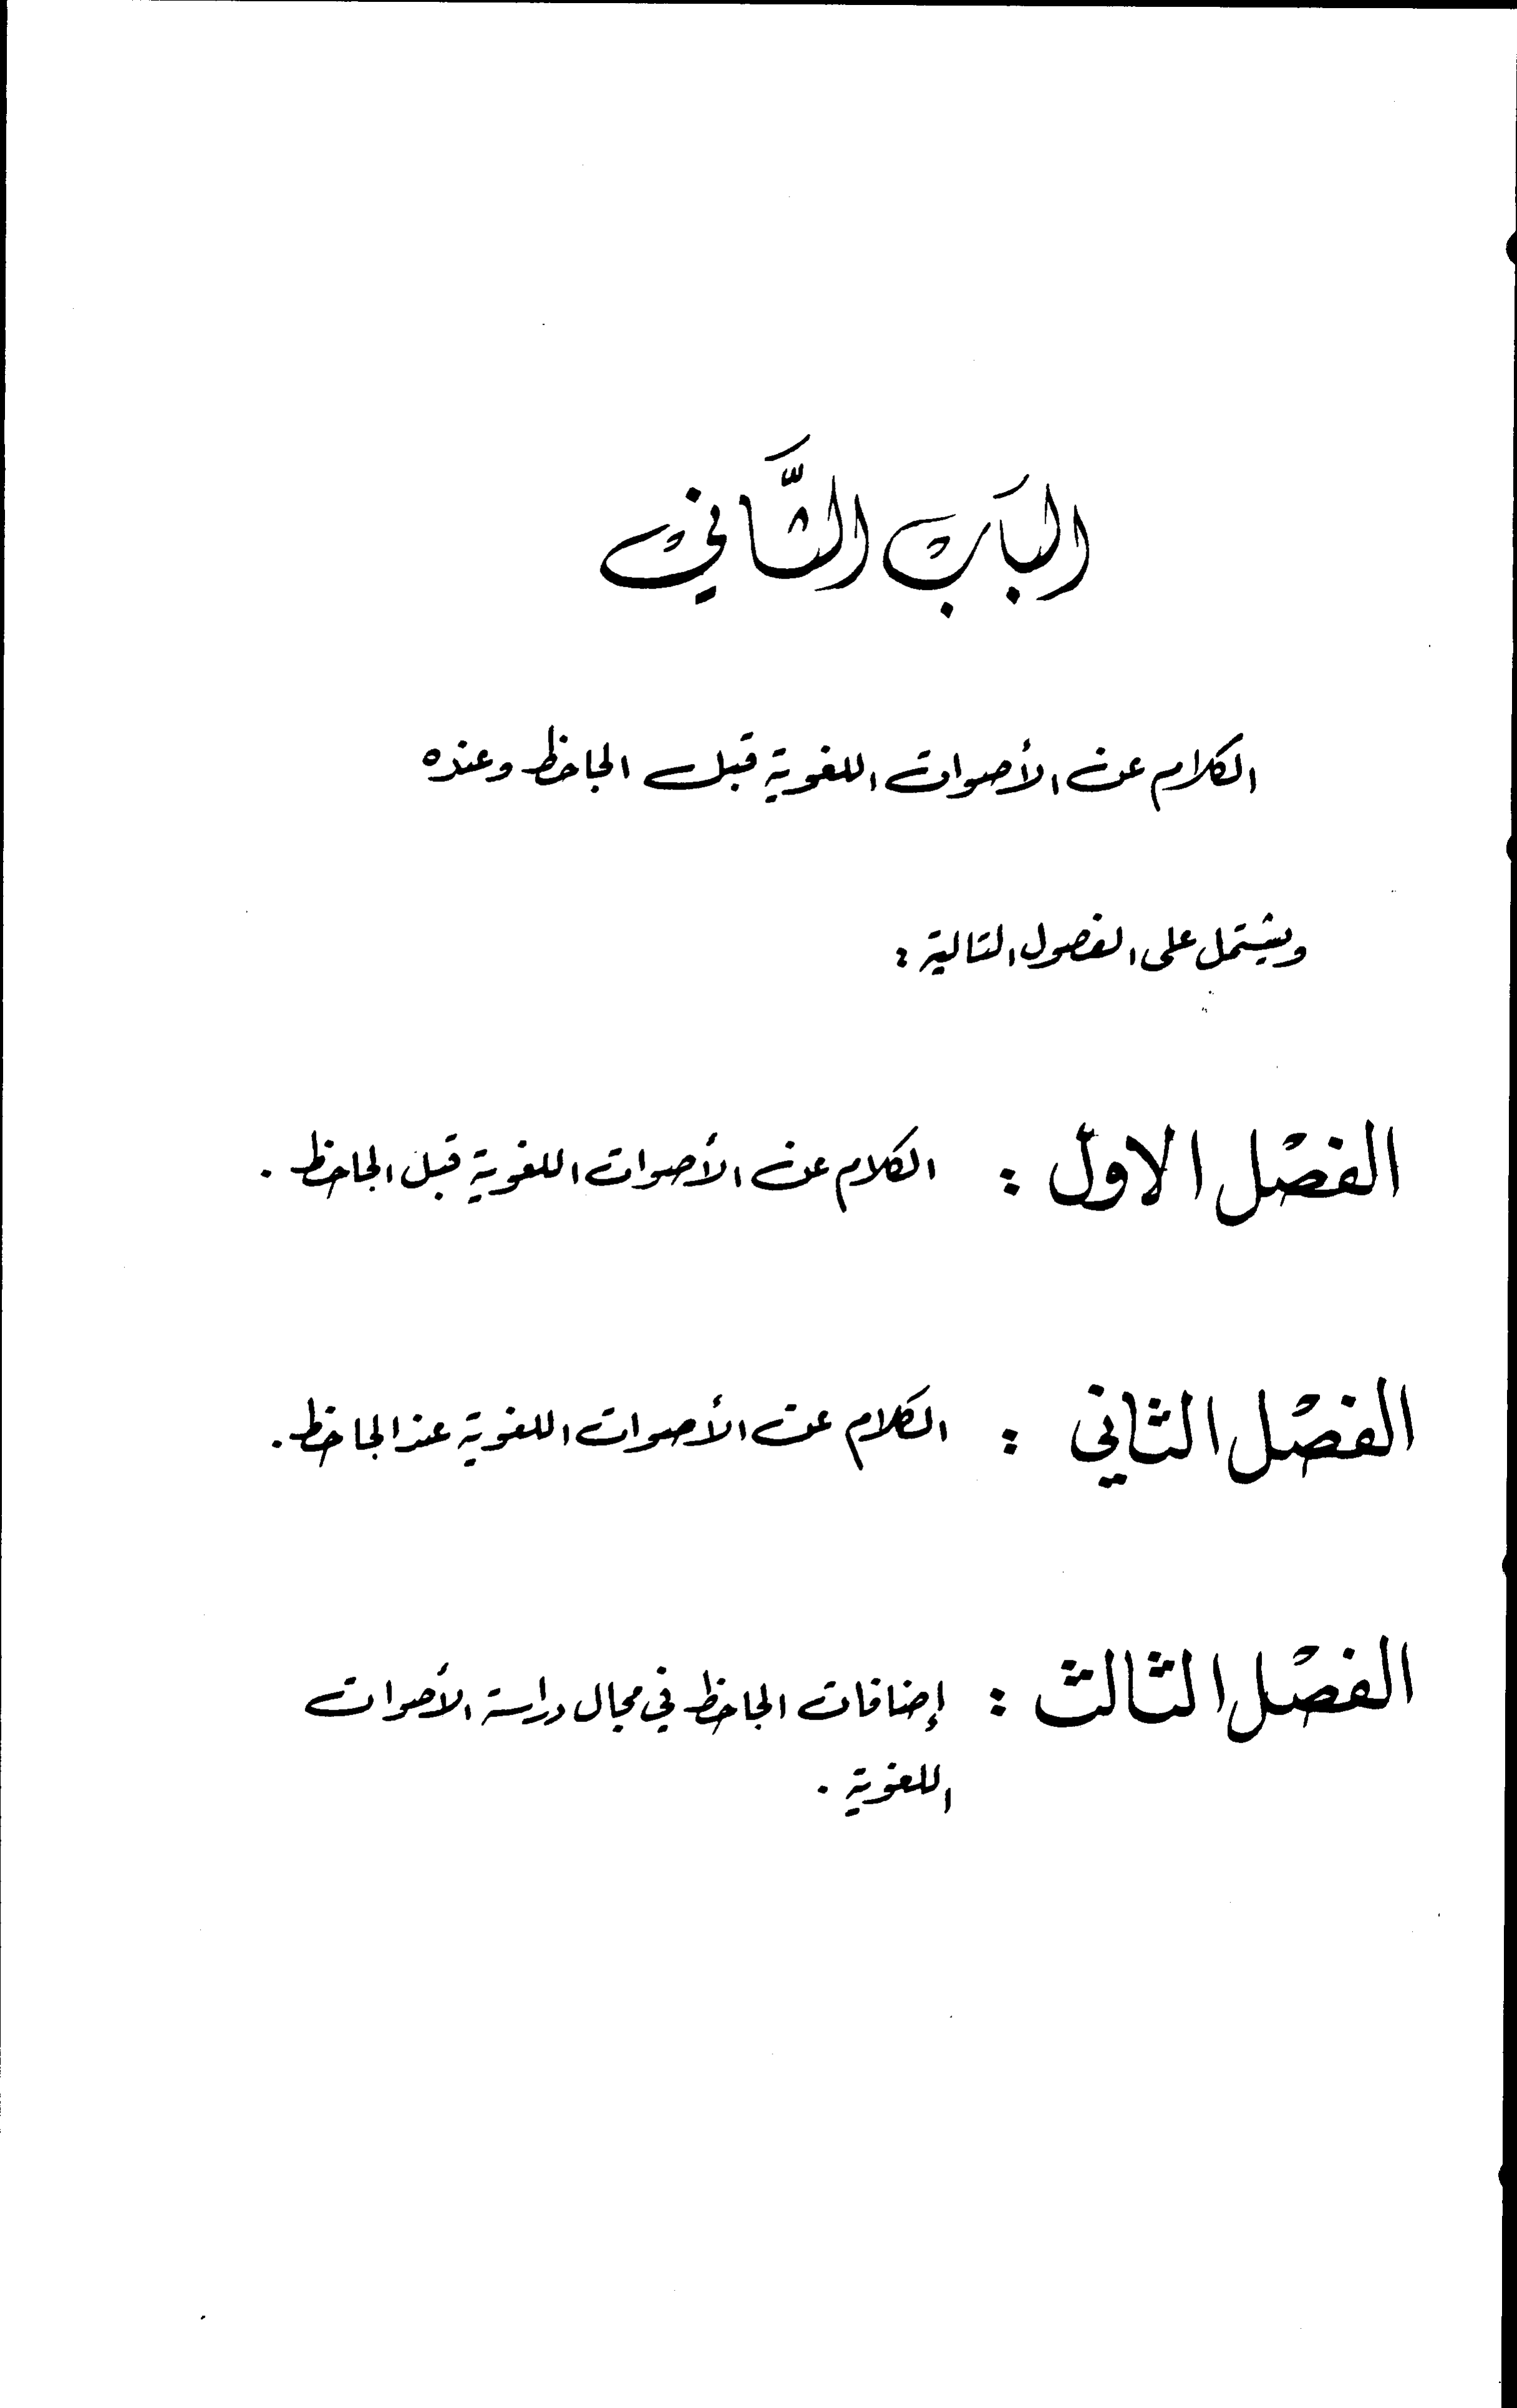 البَابُ الثَّاني
الكلام عن الأصوات اللغوية قبل الجاحظ وعنده
ويشتمل على الفصول التالية :
الفصْل الاول : الكلام عن الأصوات اللغوية قبل الجاحظ .
الفصْل الثاني : الكلام عن الأصوات اللغوية عند الجاحظ .
الفصْل الثالث : إضافات الجاحظ في مجال دراسة الأصوات
اللغوية .